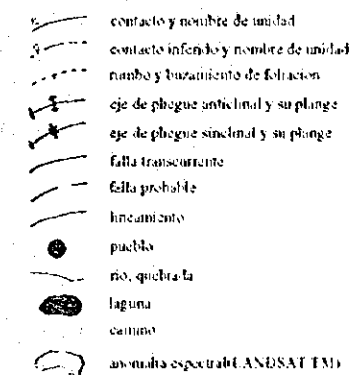 contacto y nombre de unidad
contacto inferido y nombre de unidad
rumbo y buzamiento de foliacion
eje de pliegue anticlinal y su plunge
eje de pliegue sinclinal y su plunge
falla transcurrente
falla probable
lineamiento
pueblo
rio, quebrada
laguna
camino
anomalia espectral (LANDSAT TM)